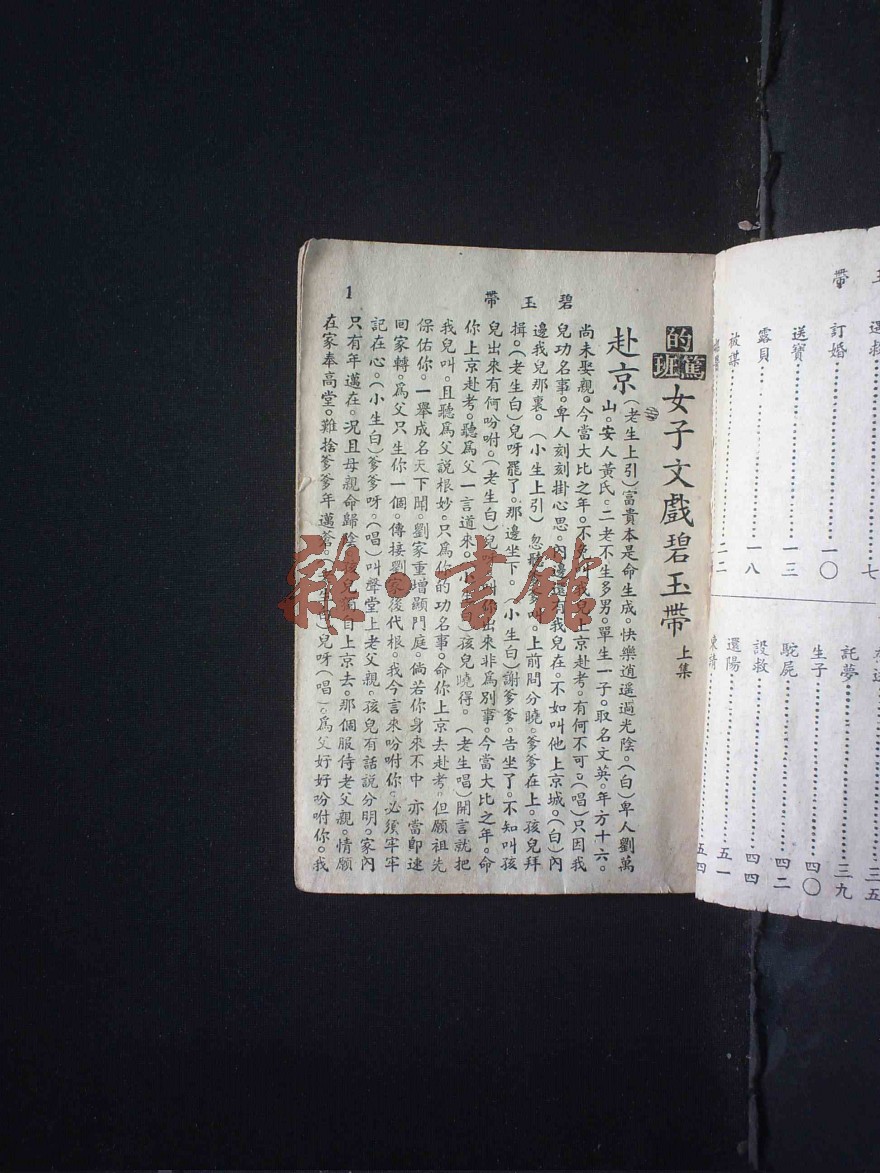 碧玉帶
1
的篤班
女子文戲碧玉帶 上集
赴京
(老生上引)富貴本是命生成。快樂逍遥過光陰。(白)卑人劉萬
山。安人黃氏。二老不生多男。單生一子。取名文英。年方十六。
尚未娶親。今當大比之年。不免叫我兒上京赴考。有何不可。(唱)只因我
兒功名事。卑人刻刻掛心思。內邊還有我兒在。不如叫他上京城。(白)內
邊我兒那裏。(小生上引)忽聽爹爹叫。上前問分曉。爹爹在上。孩兒拜
揖。(老生白)兒呀罷了。那邊坐下。(小生白)謝爹爹。告坐了。不知叫孩
兒出來有何吩咐。(老生白)兒呀。叫你出來非爲別事。今當大比之年。命
你上京赴考。聽爲父一言道來。(小生白)孩兒曉得。(老生唱)開言就把
我兒叫。且聽爲父說根妙。只爲你的功名事。命你上京去赴考。但願祖先
保佑你。一舉成名天下聞。劉家重增顯門庭。倘若你身來不中 亦當即速
回家轉。爲父只生你一個。傳接劉家後代根。我今言來吩咐你。必須牢牢
記在心。(小生白)爹爹呀。(唱)叫聲堂上老父親。孩兒有話說分明。家內
只有年邁在。况且母親命歸陰。兒獨自上京去。那個服侍老父親。情願
在家奉高堂。難捨爹爹年邁蒼。(老生白)兒呀(唱)。爲父好好吩咐你。我
帶
訂婚 一〇
送寶 一三
露貝 一八
被謀 二二
七
三五
託夢 三九
生子 四〇
駝屍 四二
設救 四四
還陽 五一
五四
雜·書館